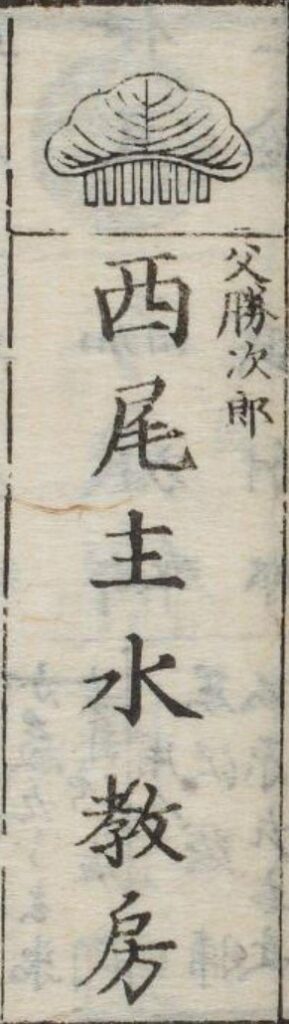 父勝次郎
西尾主水教房